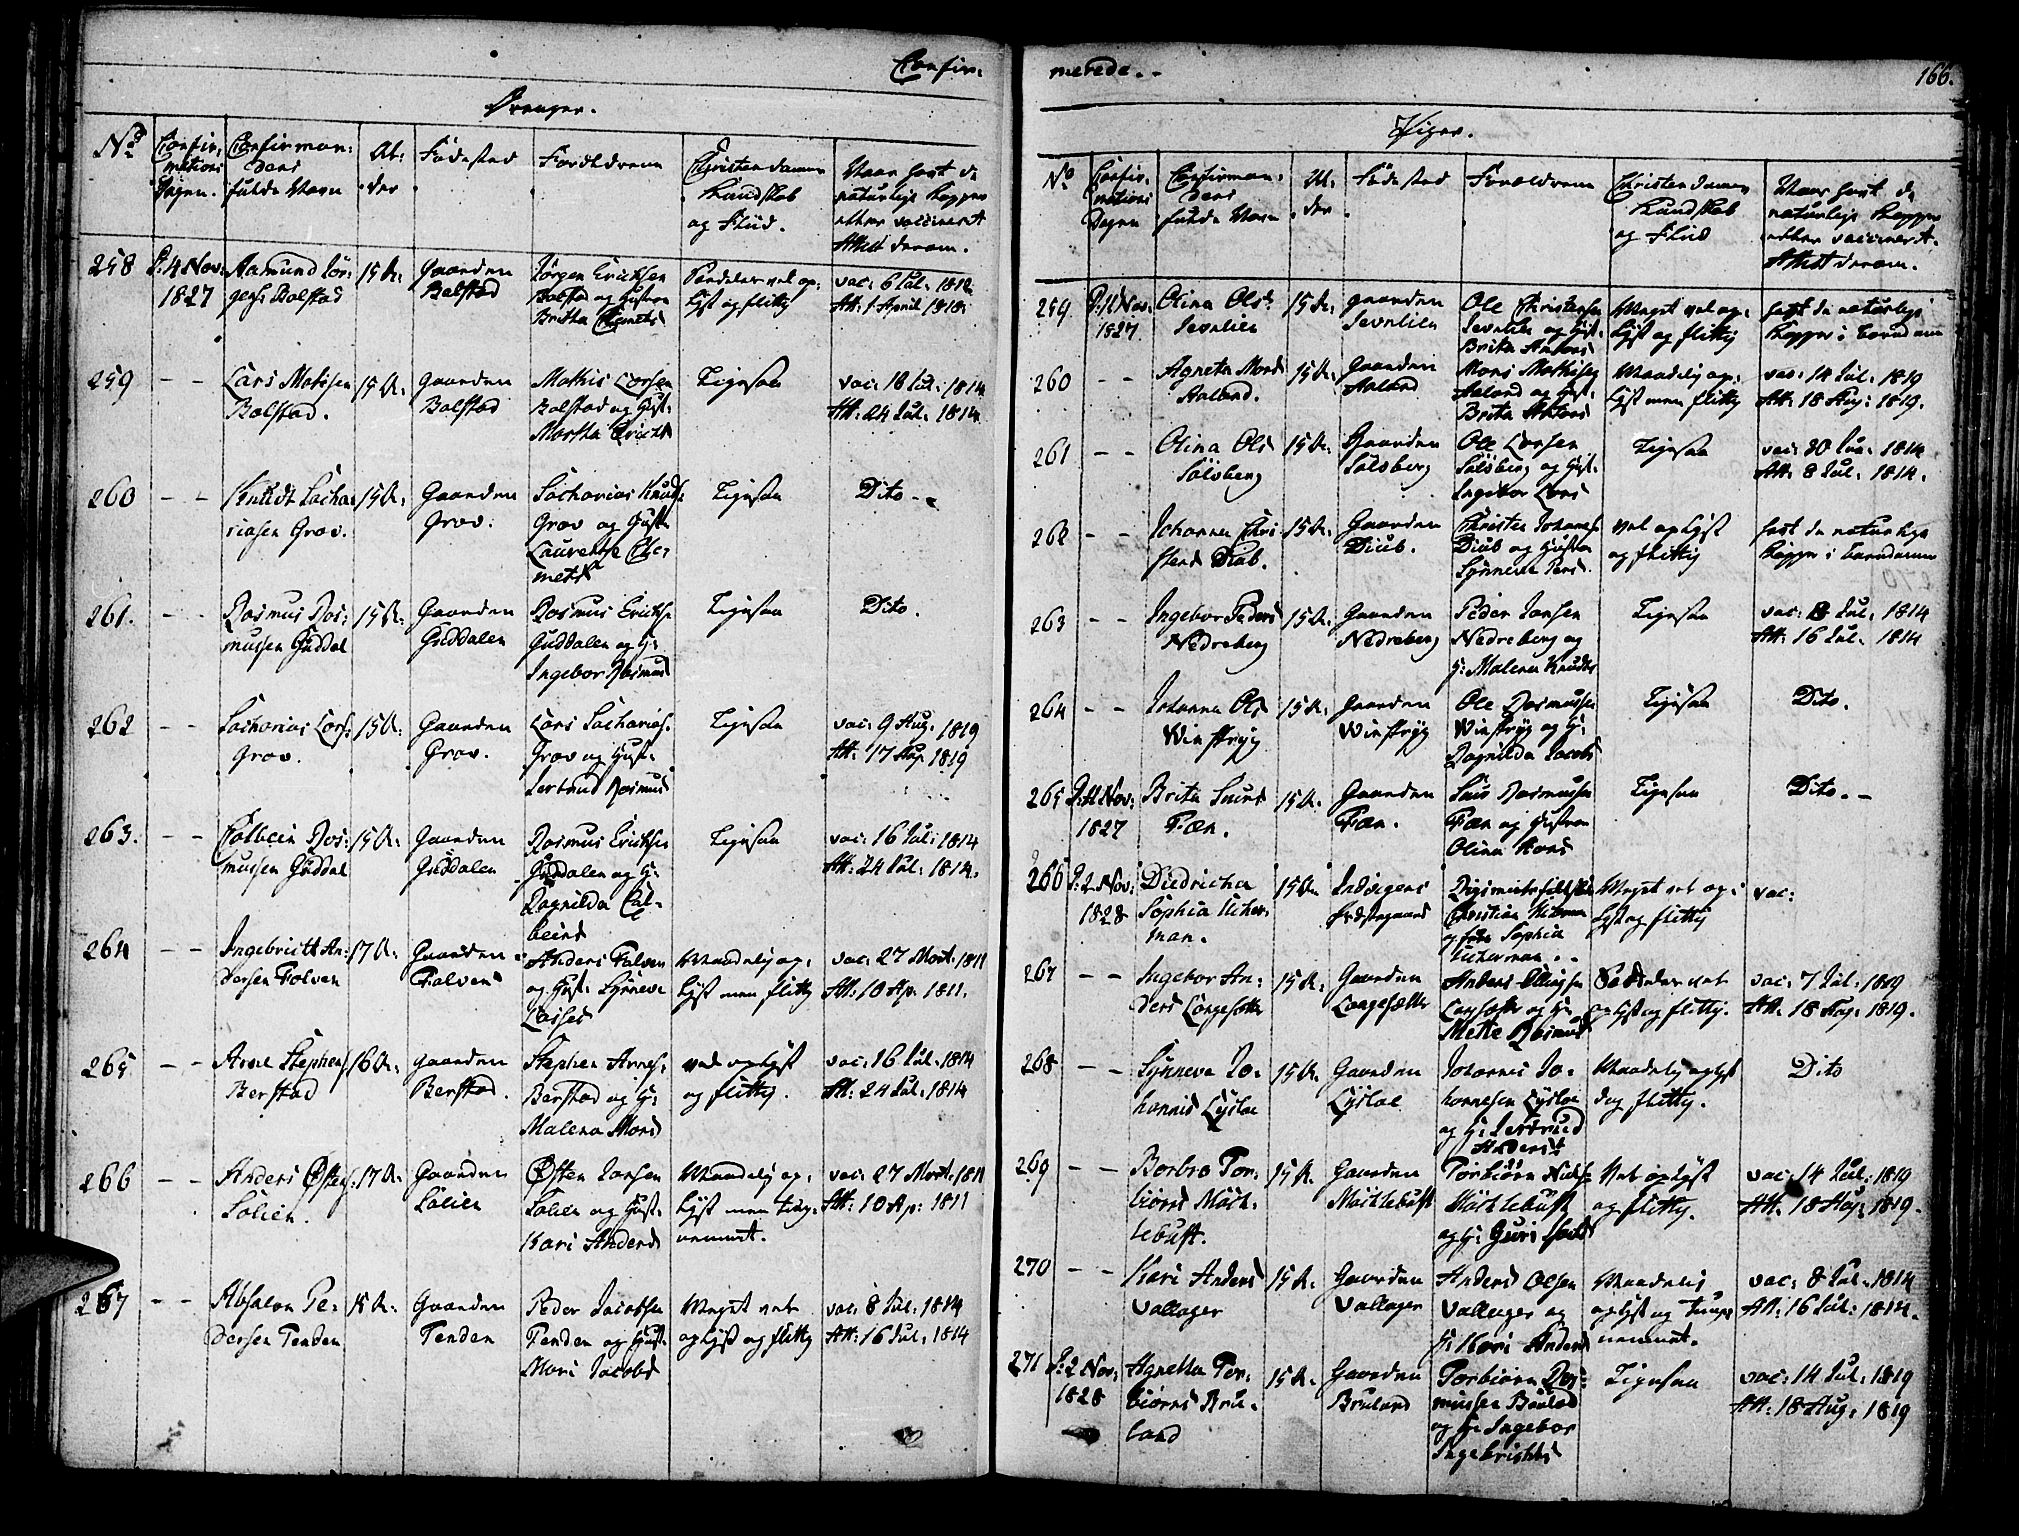 Confir-
Drenger.
No
Confir-
mations
Dagen.
Confirman-
dens
fulde Navn
Al-
der
Fødested
Forældrene
Christendoms
Kundskab
og Flid.
Naar havt de
naturlige Kopper
eller vaccineret
Attest derom.
258
D: 4 Nov:
1827
Aamund Jør-
gens: Bolstad
15 A:
Gaarden
Bolstad
Jørgen Ericksen
Bolstad og Hustru
Britha Clemets
Særdeles vel op-
lyst og flittig
vac: 6 Jul: 1812
Att: 1 April 1818
259
- -
Lars Matissen
Bolstad.
15 A:
Gaarden
Bolstad
Mathis Larsen
Bolstad og Hust:
Martha Ericks
Ligesaa
vac: 18 Jul: 1814
Att: 24 Jul: 1814
260
- -
Knudt Sacha-
riasen Grov.
15 A:
Gaarden
Grov.
Sacharias Knuds:
Grov og Hust:
Laurentse Cle-
mets
Ligesaa
Dito -
261.
- -
Rasmus Ras-
mussen Guddal
15 A:
Gaarden
Guddalen
Rasmus Ericks:
Guddalen og H:
Ingebor Rasmus
Ligesaa
Dito.
262
- -
Sacharias Lars:
Grov.
15 A:
Gaarden
Grov.
Lars Sacharias:
Grov og Hust:
Jertrud Rasmus
Ligesaa
vac: 9 Aug: 1819
Att: 17 Aug. 1819
263.
- -
Colbein Ras-
mussen Guddal
15 A:
Gaarden
Guddalen
Rasmus Ericks:
Guddalen og H:
Ragnilda Col-
beins
Ligesaa
vac: 16 Jul: 1814
Att: 24 Jul: 1814.
264
- -
Ingebrictt An-
dersen Folven
17 A:
Gaarden
Folven
Anders Folven
og Hust: Synneve
Lasses
Maadelig op-
lyst men flittig
vac: 27 Mart: 1811
Att: 10 Ap. 1811.
265
- -
Arne Stephens:
Berstad
16 A:
Gaarden
Berstad.
Stephen Arnes:
Berstad og H:
Malena Mons
vel oplyst
og flittig.
vac: 16 Jul: 1814
Att: 24 Jul: 1814
266
- -
Anders Østens:
Solien.
17 A:
Gaarden
Solien
Østen Larsen
Solien og Hust:
Kari Anders
Maadelig op-
lyst men tung-
nemmet.
vac: 27 Mart: 1811
Att: 10 Ap: 1811
267
- -
Absalon Pe-
dersen Tenden
15 A:
Gaarden
Tenden
Peder Jacobsen
Tenden og Hust:
Mari Jacobs
Meget vel
oplyst og flittig
vac: 8 Jul: 1814
Att: 16 Jul: 1814
merede. -
166.
Piger.
No
Confir-
mations
Dagen
Confirman-
dens
fulde Navn
Al-
der
Fødested
Forældrene
Christendoms
Kundskab
og Flid
Naar havt de
naturlige Kopper
eller vaccineret.
Attest derom.
259
D: 4 Nov:
1827
Olina Ols:
Sevalien
15 A:
Gaarden
Sevalien
Ole Christensen
Sevalien og Hust:
Brita Anders
Meget vel op-
lyst og flittig
havt de naturlige
Kopper i Barndom
260
- -
Agneta Mons
Aaland.
15 A:
Gaarden
Aaland
Mons Mathisen
Aaland og Hust:
Brita Anders
Maadelig op-
lyst men flittig
vac: 14 Jul: 1819
Att: 18 Aug: 1819.
261
- -
Olina Ols
Solsberg
15 A:
Gaarden
Solsberg
Ole Larsen
Solsberg og Hust:
Ingebor Lars
Ligesaa
vac: 30 Jun: 1814
Att: 8 Jul: 1814.
262
- -
Johanna Chri-
stens Diub.
15 A:
Gaarden
Diub.
Christen Johans:
Diub og Hustru
Synneva Pers
vel oplyst
og flittig
havt de naturlige
Kopper i Barndommen
263
- -
Ingebor Peders
Nedreberg
15 A:
Gaarden
Nedreberg
Peder Jansen
Nedreberg og
H: Malena Knuds
Ligesaa
vac: 8 Jul: 1814
Att: 16 Jul: 1814
264
- -
Johanna Ols
Winstryg
15 A:
Gaarden
Winstryg
Ole Rasmussen
Winstryg og H:
Ragnilda Jacobs
Ligesaa
Dito.
265
Nov:
1827
Brita Siurs
Fæn.
15 A:
Gaarden
Fæn.
Siur Rasmussen
Fæn og Hustru
Olina Hans
Ligesaa
Dito. -
266
D: 2 Nov:
1828
Diedricha
Sophia Ucher-
man.
15 A:
Indvigens
Præstegaard
Christian
og Sophia
Ucherman
Meget vel op-
lyst og flittig
vac:
267
- -
Ingebor An-
ders Langesætter
15 A:
Gaarden
Langesætter
Anders Ellingsen
Langsætter og H:
Mette Rasmus
Særdeles vel
oplyst og flittig.
vac: 7 Jul: 1819
Att: 18 Aug: 1819.
268
- -
Synneva Jo-
hannis Lysloe
15 A:
Gaarden
Lysloe
Johannes Jo-
hannesen Lysloe
og H: Jertrud
Anders:
Maadelig oplyst
dog flittig.
Dito
269
- -
Borbro Tor-
biørns Mæk-
lebust.
15 A:
Gaarden
Mæklebust
Torbiørn Niels:
Mæklebust
og H: Guri
Vel oplyst
og flittig.
vac: 14 Jul: 1819
Att: 18 Aug: 1819.
270
- -
Kari Anders
Vallager
15 A:
Gaarden
Vallager
Anders Olsen
Vallager og
H: Kari Anders
Maadelig
oplyst og tung-
nemmet.
vac: 8 Jul: 1814
Att: 16 Jul: 1814.
271
D: 2 Nov:
1828
Agnetha Tor-
biørns Bru-
land
15 A:
Gaarden
Bruland
Torbiørn Ras-
mussen Bruland
og H: Ingebor
Ingebrictts
Ligesaa
vac: 14 Jul: 1819
Att: 18 Aug: 1819